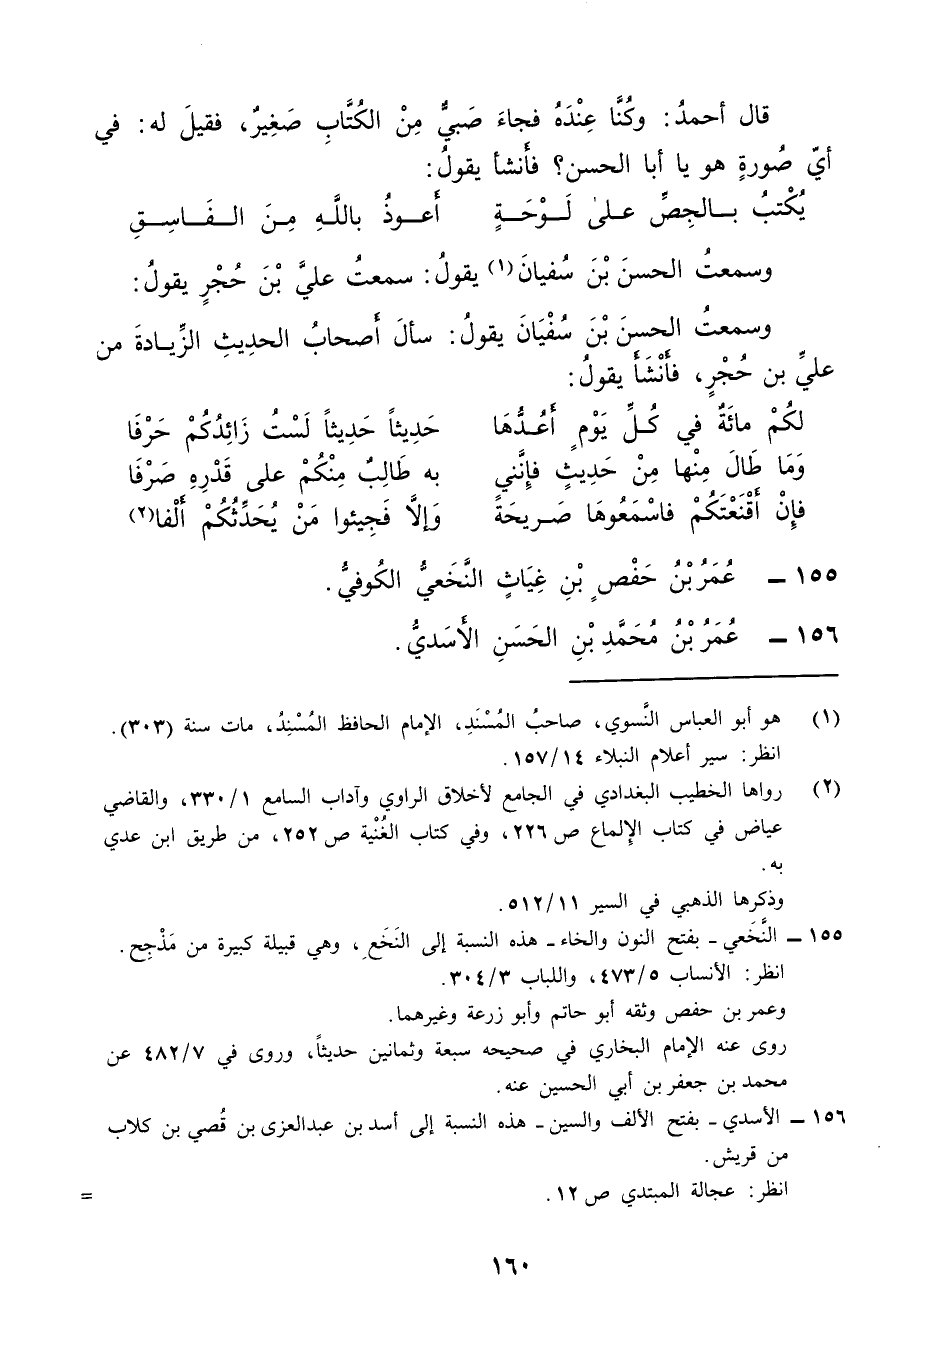 قال أحمدُ: وكُنَّا عِنْدَهُ فجاءَ صَبيٌّ مِنْ الكُتَّابِ صَغِيرٌ، فقيلَ له: في
أيّ صُورةٍ هو يا أبا الحسن؟ فأَنشأ يقولُ:
يُكْتبُ بـالجِصِّ علـىٰ لَـوْحَـةٍ أَعـوذُ باللَّهِ مِـنَ الـفَـاسِـقِ
وسمعتُ الحسنَ بْنَ سُفيانَ(١) يقولُ: سمعتُ عليَّ بْنَ حُجْرٍ يقولُ:
وسمعتُ الحسنَ بْنَ سُفْيَانَ يقولُ: سألَ أَصحابُ الحديثِ الزِّيـادةَ من
عليِّ بن حُجْرٍ، فأَنْشَأَ يقولُ:
لكُمْ مائَةٌ في كُـلِّ يَوْمٍ أَعُـدُّهَا حَدِيثاً حَدِيثاً لَسْتُ زَائِدُكُمْ حَرْفَا
وَمَا طَالَ مِنْها مِنْ حَديثٍ فإِنَّني به طَالِبٌ مِنْكُمْ على قَدْرِهِ صَرْفَا
فإِنْ أَقْنَعْتَكُمْ فاسْمَعُوهَا صَـريحَةً وَإلَّا فَجِيئوا مَنْ يُحَدِّثُكُمْ أَلْفا(٢)
١٥٥ ـ عُمَرُ بْنُ حَفْصِ بْنِ غِيَاثٍ النَّخَعيُّ الكُوفيُّ.
١٥٦ ـ عُمَرُ بْنُ مُحَمَّدِ بْنِ الحَسَنِ الأَسَديُّ.
(١) هو أبو العباس النَّسوي، صاحبُ المُسْنَدِ، الإمام الحافظ المُسْنِدُ، مات سنة (٣٠٣).
انظر: سير أعلام النبلاء ١٤/١٥٧.
(٢) رواها الخطيب البغدادي في الجامع لأخلاق الراوي وآداب السامع ١/٣٣٠، والقاضي
عياض في كتاب الإلماع ص ٢٢٦، وفي كتاب الغُنْية ص ٢٥٢، من طريق ابن عدي
به.
وذكرها الذهبي في السير ١١/٥١٢.
١٥٥ ـ النَّخَعي ـ بفتح النون والخاء ـ هذه النسبة إلى النَخَعِ، وهي قبيلة كبيرة من مَذْجِح.
انظر: الأنساب ٥/٤٧٣، واللباب ٣/٣٠٤.
وعمر بن حفص وثقه أبو حاتم وأبو زرعة وغيرهما.
روى عنه الإمام البخاري في صحيحه سبعة وثمانين حديثاً، وروى في ٧/٤٨٢ عن
محمد بن جعفر بن أبي الحسين عنه.
١٥٦ ـ الأسدي ـ بفتح الألف والسين ـ هذه النسبة إلى أسد بن عبدالعزى بن قُصي بن كلاب
من قريش.
انظر: عجالة المبتدي ص ١٢.
=
١٦٠